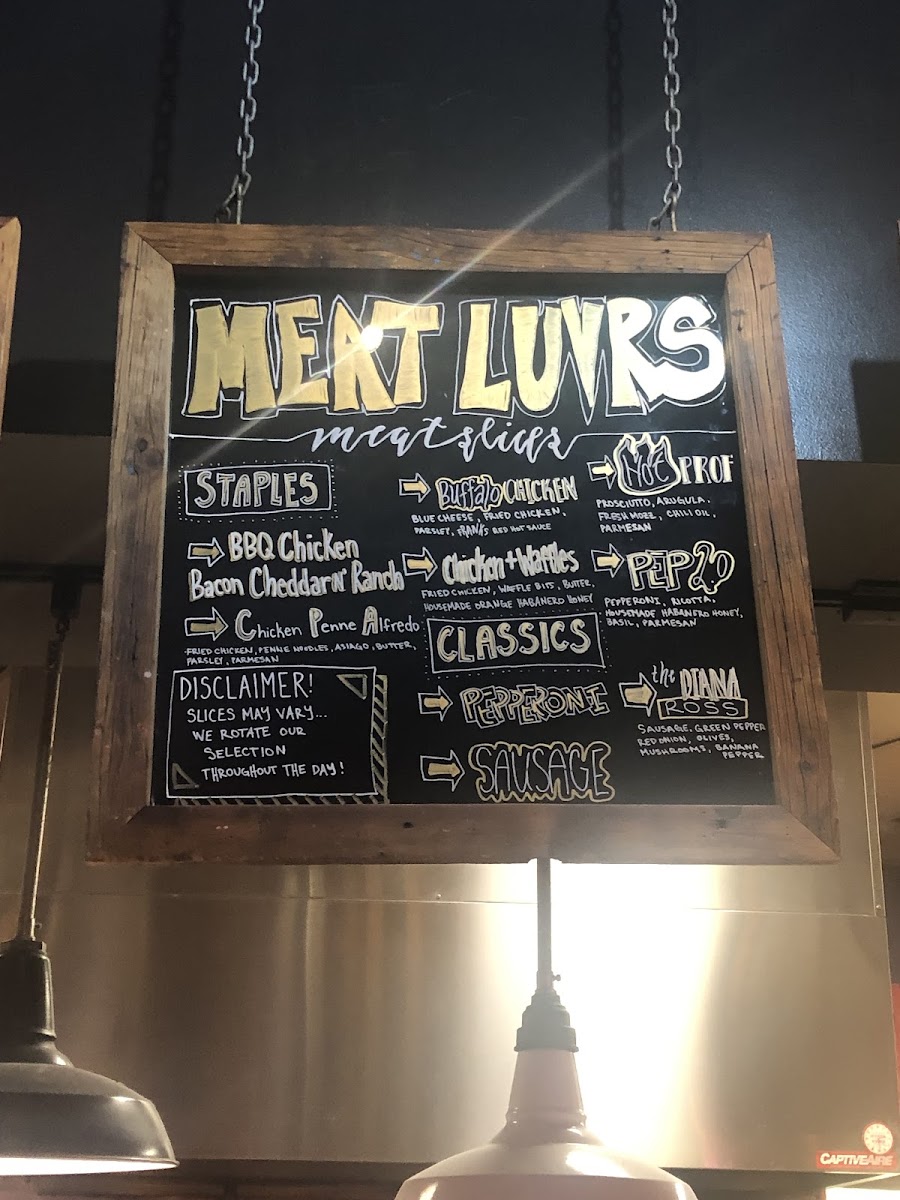 MEAT LUVRS
meat slices
STAPLES
BBQ Chicken
Bacon Cheddar N' Ranch
Chicken Penne Alfredo
FRIED CHICKEN, PENNE NOODLES, ASIAGO, BUTTER,
PARSLEY, PARMESAN
DISCLAIMER!
SLICES MAY VARY...
WE ROTATE OUR
SELECTION
THROUGHOUT THE DAY!
Buffalo CHICKEN
BLUE CHEESE, FRIED CHICKEN,
PARSLEY, FRANK'S RED HOT SAUCE
Chicken + Waffles
FRIED CHICKEN, WAFFLE BITS, BUTTER,
HOUSEMADE ORANGE HABANERO HONEY
CLASSICS
PEPPERONI
SAUSAGE
Hot PROF
PROSCIUTTO, ARUGULA,
FRESH MOZZ, CHILI OIL,
PARMESAN
PEP 2.0
PEPPERONI, RICOTTA,
HOUSEMADE HABANERO HONEY,
BASIL, PARMESAN
the DIANA
ROSS
SAUSAGE, GREEN PEPPER
RED ONION, OLIVES,
MUSHROOMS, BANANA
PEPPER
CAPTIVEAIRE